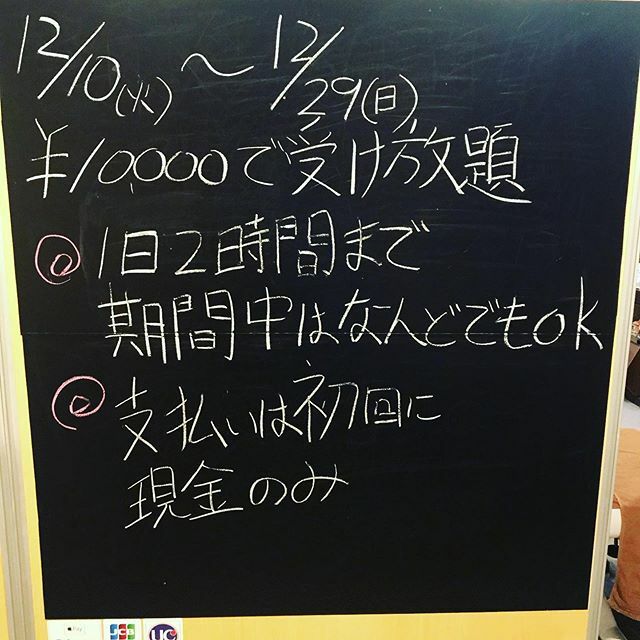 12/10(火)〜12/29(日)
¥10,000で受け放題
@1日2時間まで
期間中はなんどでもok
@支払いは初回に
現金のみ
Pay
JCB
UC